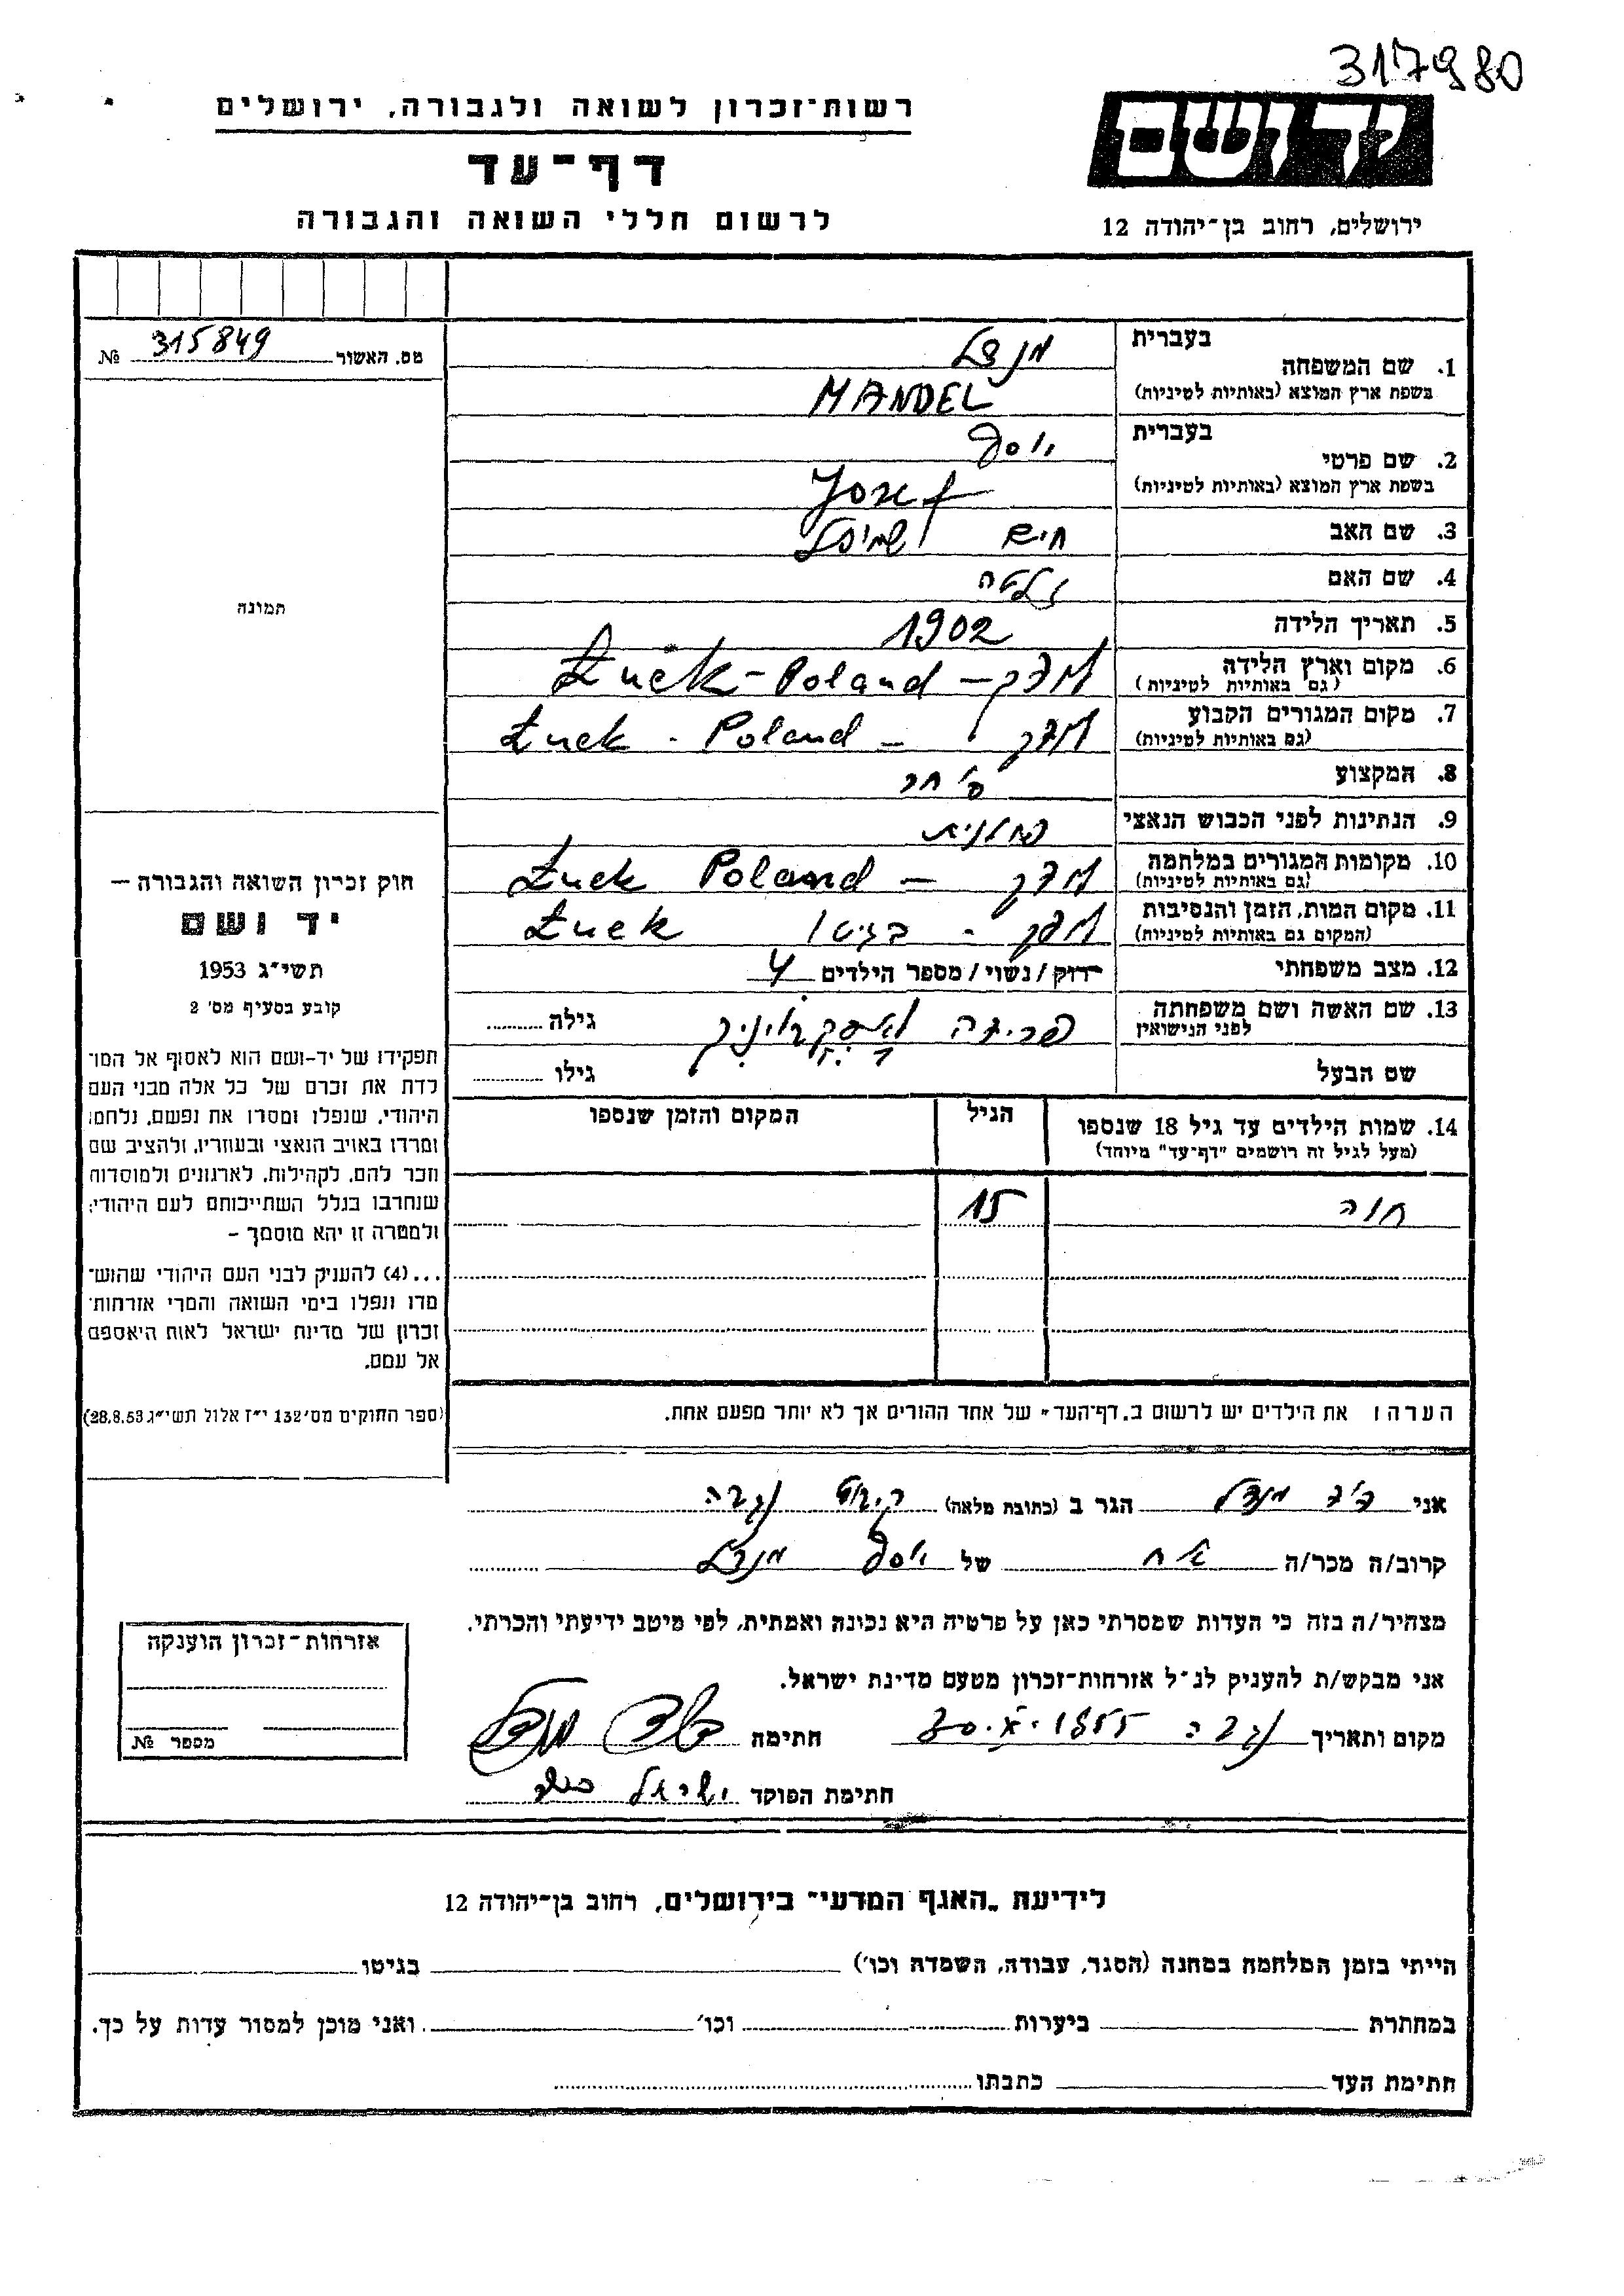 317980
רשות־זכרון לשואה ולגבורה, ירושלים
יד ושם
דף־עד
לרשום חללי השואה והגבורה
ירושלים, רחוב בן־יהודה 12
מס. האשור 315849 №
תמונה
חוק זכרון השואה והגבורה –
יד ושם
תשי״ג 1953
קובע בסעיף מס׳ 2
תפקידו של יד-ושם הוא לאסוף אל המו־
לדת את זכרם של כל אלה מבני העם
היהודי, שנפלו ומסרו את נפשם, נלחמו
ומרדו באויב הנאצי ובעוזריו, ולהציב שם
וזכר להם, לקהילות, לארגונים ולמוסדות
שנחרבו בגלל השתייכותם לעם היהודי;
ולמטרה זו יהא מוסמך –
...(4) להעניק לבני העם היהודי שהוש־
מדו ונפלו בימי השואה והמרי אזרחות־
זכרון של מדינת ישראל לאות היאספם
אל עמם.
(ספר החוקים מס׳ 132 י״ז אלול תשי״ג 28.8.53)
בעברית מנדל
1. שם המשפחה
בשפת ארץ המוצא (באותיות לטיניות) MANDEL
בעברית יוסף
2. שם פרטי
בשפת ארץ המוצא (באותיות לטיניות) Josef
3. שם האב חיים שמואל
4. שם האם זלטה
5. תאריך הלידה 1902
6. מקום וארץ הלידה לודק – Łuck - Poland
(גם באותיות לטיניות)
7. מקום המגורים הקבוע לודק – Łuck - Poland
(גם באותיות לטיניות)
8. המקצוע סוחר
9. הנתינות לפני הכבוש הנאצי פולנית
10. מקומות המגורים במלחמה לודק – Łuck Poland
(גם באותיות לטיניות)
11. מקום המות, הזמן והנסיבות לודק - בגיטו Łuck
(המקום גם באותיות לטיניות)
12. מצב משפחתי רווק/נשוי/מספר הילדים 4
13. שם האשה ושם משפחתה פרידה גילה
לפני הנישואין
שם הבעל גילו
14. שמות הילדים עד גיל 18 שנספו הגיל המקום והזמן שנספו
(מעל לגיל זה רושמים "דף־עד" מיוחד)
חוה 15
הערה: את הילדים יש לרשום ב„דף־העד" של אחד ההורים אך לא יותר מפעם אחת.
אני מנדל הגר ב (כתובת מלאה) קיבוץ נגבה
קרוב/ה מכר/ה אח של יוסף מנדל
מצהיר/ה בזה כי העדות שמסרתי כאן על פרטיה היא נכונה ואמתית, לפי מיטב ידיעתי והכרתי.
אני מבקש/ת להעניק לנ״ל אזרחות־זכרון מטעם מדינת ישראל.
מקום ותאריך נגבה 30.X.1955 חתימה מנדל
חתימת הפוקד ישראל
אזרחות־זכרון הוענקה
מספר №
לידיעת „האגף המדעי" בירושלים, רחוב בן־יהודה 12
הייתי בזמן המלחמה במחנה (הסגר, עבודה, השמדה וכו׳) בגיטו
במחתרת ביערות וכו׳ ואני מוכן למסור עדות על כך.
חתימת העד כתבתו